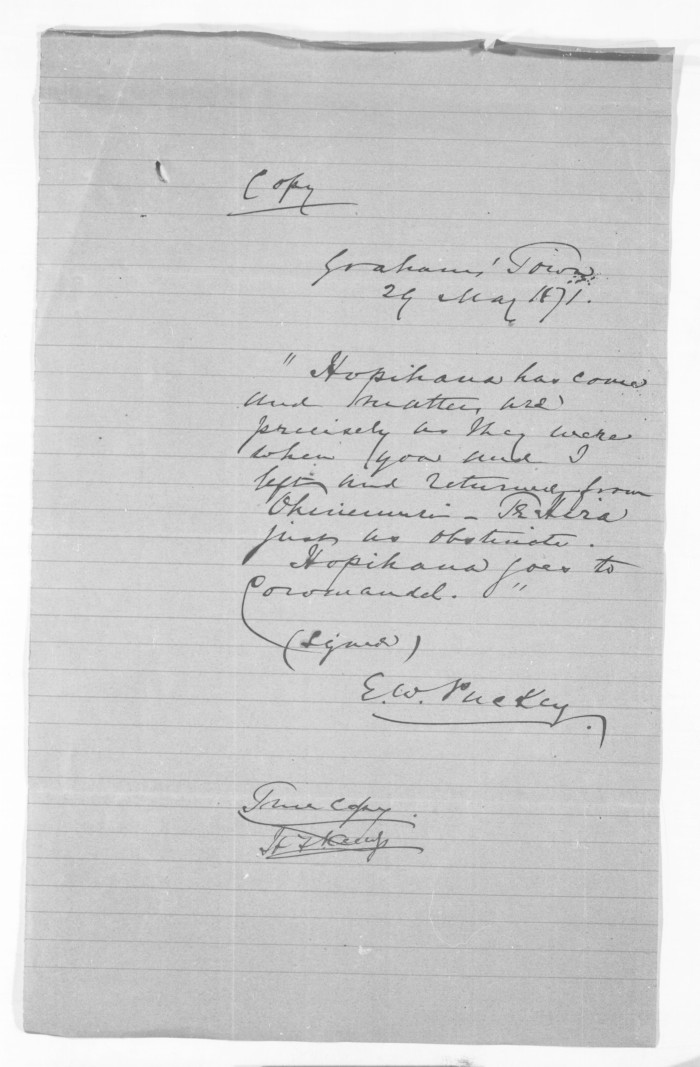 Copy
Grahams' Town
29 May 1871.
"Hopihana has come
and matters are
precisely as they were
when you and I
left and returned from
Ohinemuri - Te Hira
just as obstinate.
Hopihana goes to
Coromandel."
(signed)
E. W. Puckey.
True copy.